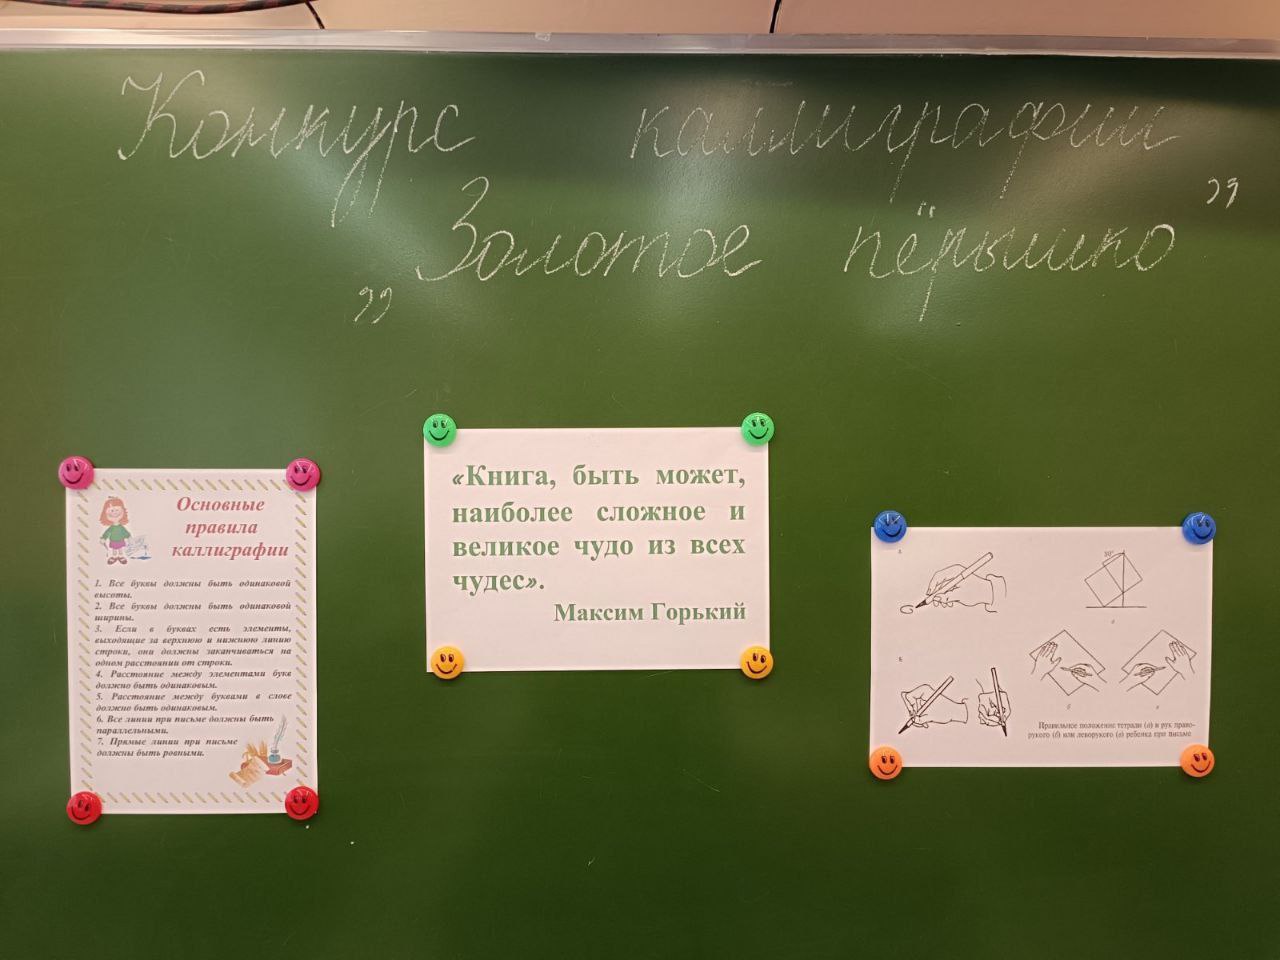 Конкурс каллиграфии
„Золотое пёрышко"
Основные
правила
каллиграфии
1. Все буквы должны быть одинаковой
высоты.
2. Все буквы должны быть одинаковой
ширины.
3. Если в буквах есть элементы,
выходящие за верхнюю и нижнюю линию
строки, они должны заканчиваться на
одном расстоянии от строки.
4. Расстояние между элементами букв
должно быть одинаковым.
5. Расстояние между буквами в слове
должно быть одинаковым.
6. Все линии при письме должны быть
параллельными.
7. Прямые линии при письме
должны быть ровными.
«Книга, быть может,
наиболее сложное и
великое чудо из всех
чудес».
Максим Горький
30°
а
б
в
Правильное положение тетради (а) и рук право-
рукого (б) или леворукого (в) ребенка при письме